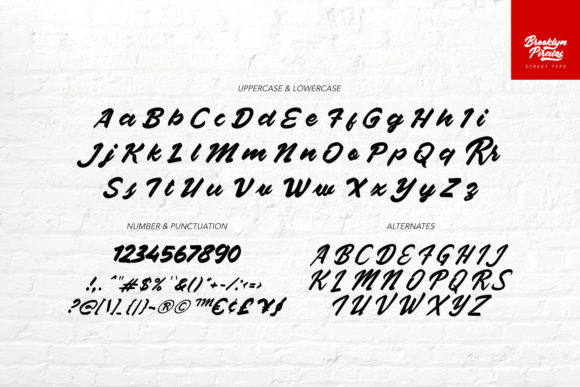 Brooklyn
Pirates
STREET TYPE
UPPERCASE & LOWERCASE
A a B b C c D d E e F f G g H h I i
J j K k L l M m N n O o P p Q q R r
S s T t U u V v W w X x Y y Z z
NUMBER & PUNCTUATION
1234567890
!,. ^"#$%'`&()*+-/:<=>
?@[\]_{|}~®© ™€¢£¥ƒ
ALTERNATES
A B C D E F G H I J
K L M N O P Q R S
T U V W X Y Z